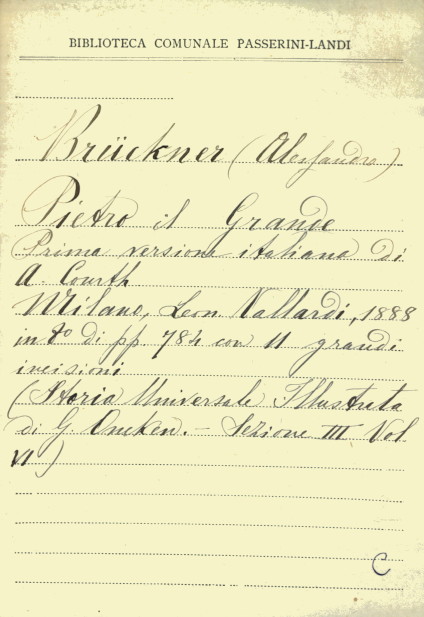 BIBLIOTECA COMUNALE PASSERINI-LANDI
Brückner (Alessandro)
Pietro il Grande
Prima versione italiana di
A. Courth
Milano, Leon. Vallardi, 1888
in 8º di pp. 784 con 11 grandi
incisioni
(Storia Universale Illustrata
di G. Oncken. - Sezione III Vol
VI)
C